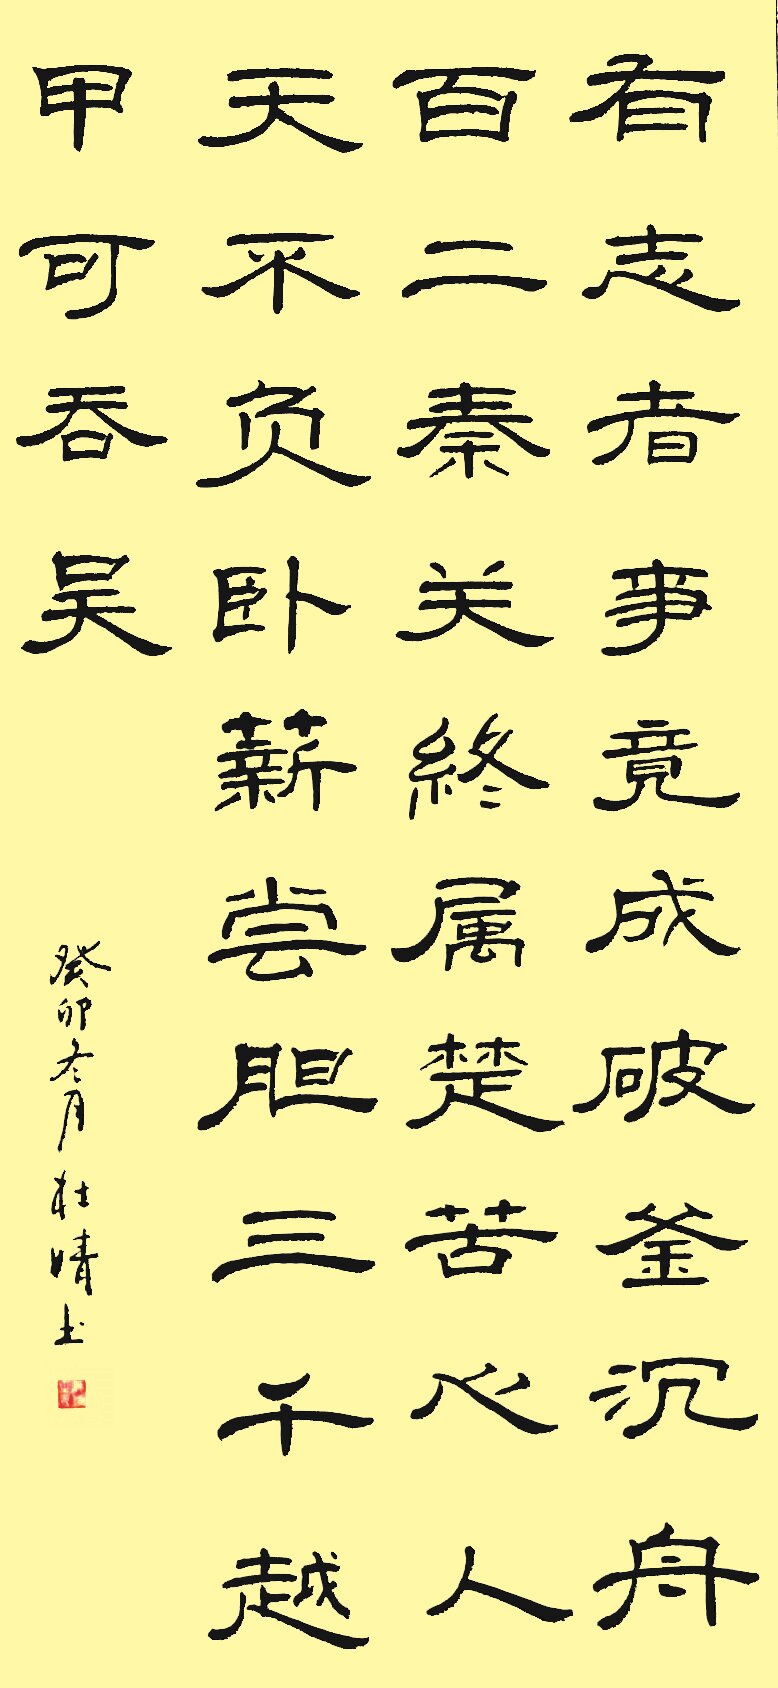 有志者事竟成破釜沉舟
百二秦关終属楚苦心人
天不负卧薪尝胆三千越
甲可吞吴
癸卯冬月杜晴